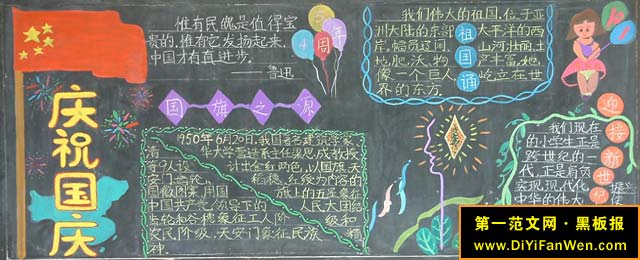 庆祝国庆
惟有民魂是值得宝
贵的,惟有它发扬起来,
中国才有真进步。
——鲁迅
54周年
国旗之源
1950年6月20日,我国著名建筑学家、
清华大学营建系主任梁思成教授
等9人设计出金红两色,以国旗、天
安门、齿轮、稻穗、红绶为内容的
国徽图案,用国旗上的五星象征
中国共产党领导下的人民大团结
齿轮和谷穗象征工人阶级和
农民阶级,天安门象征民族精
神。
我们伟大的祖国,位于亚
洲大陆的东部,太平洋的西
岸,幅员辽阔,山河壮丽,土
地肥沃,物产丰富,她
像一个巨人,屹立在世
界的东方。
祖国颂
迎接新世纪
我们现在
的小学生正是
跨世纪的一
代,正是肩负
实现现代化,振兴
中华的伟大
第一范文网·黑板报
www.DiYiFanWen.com